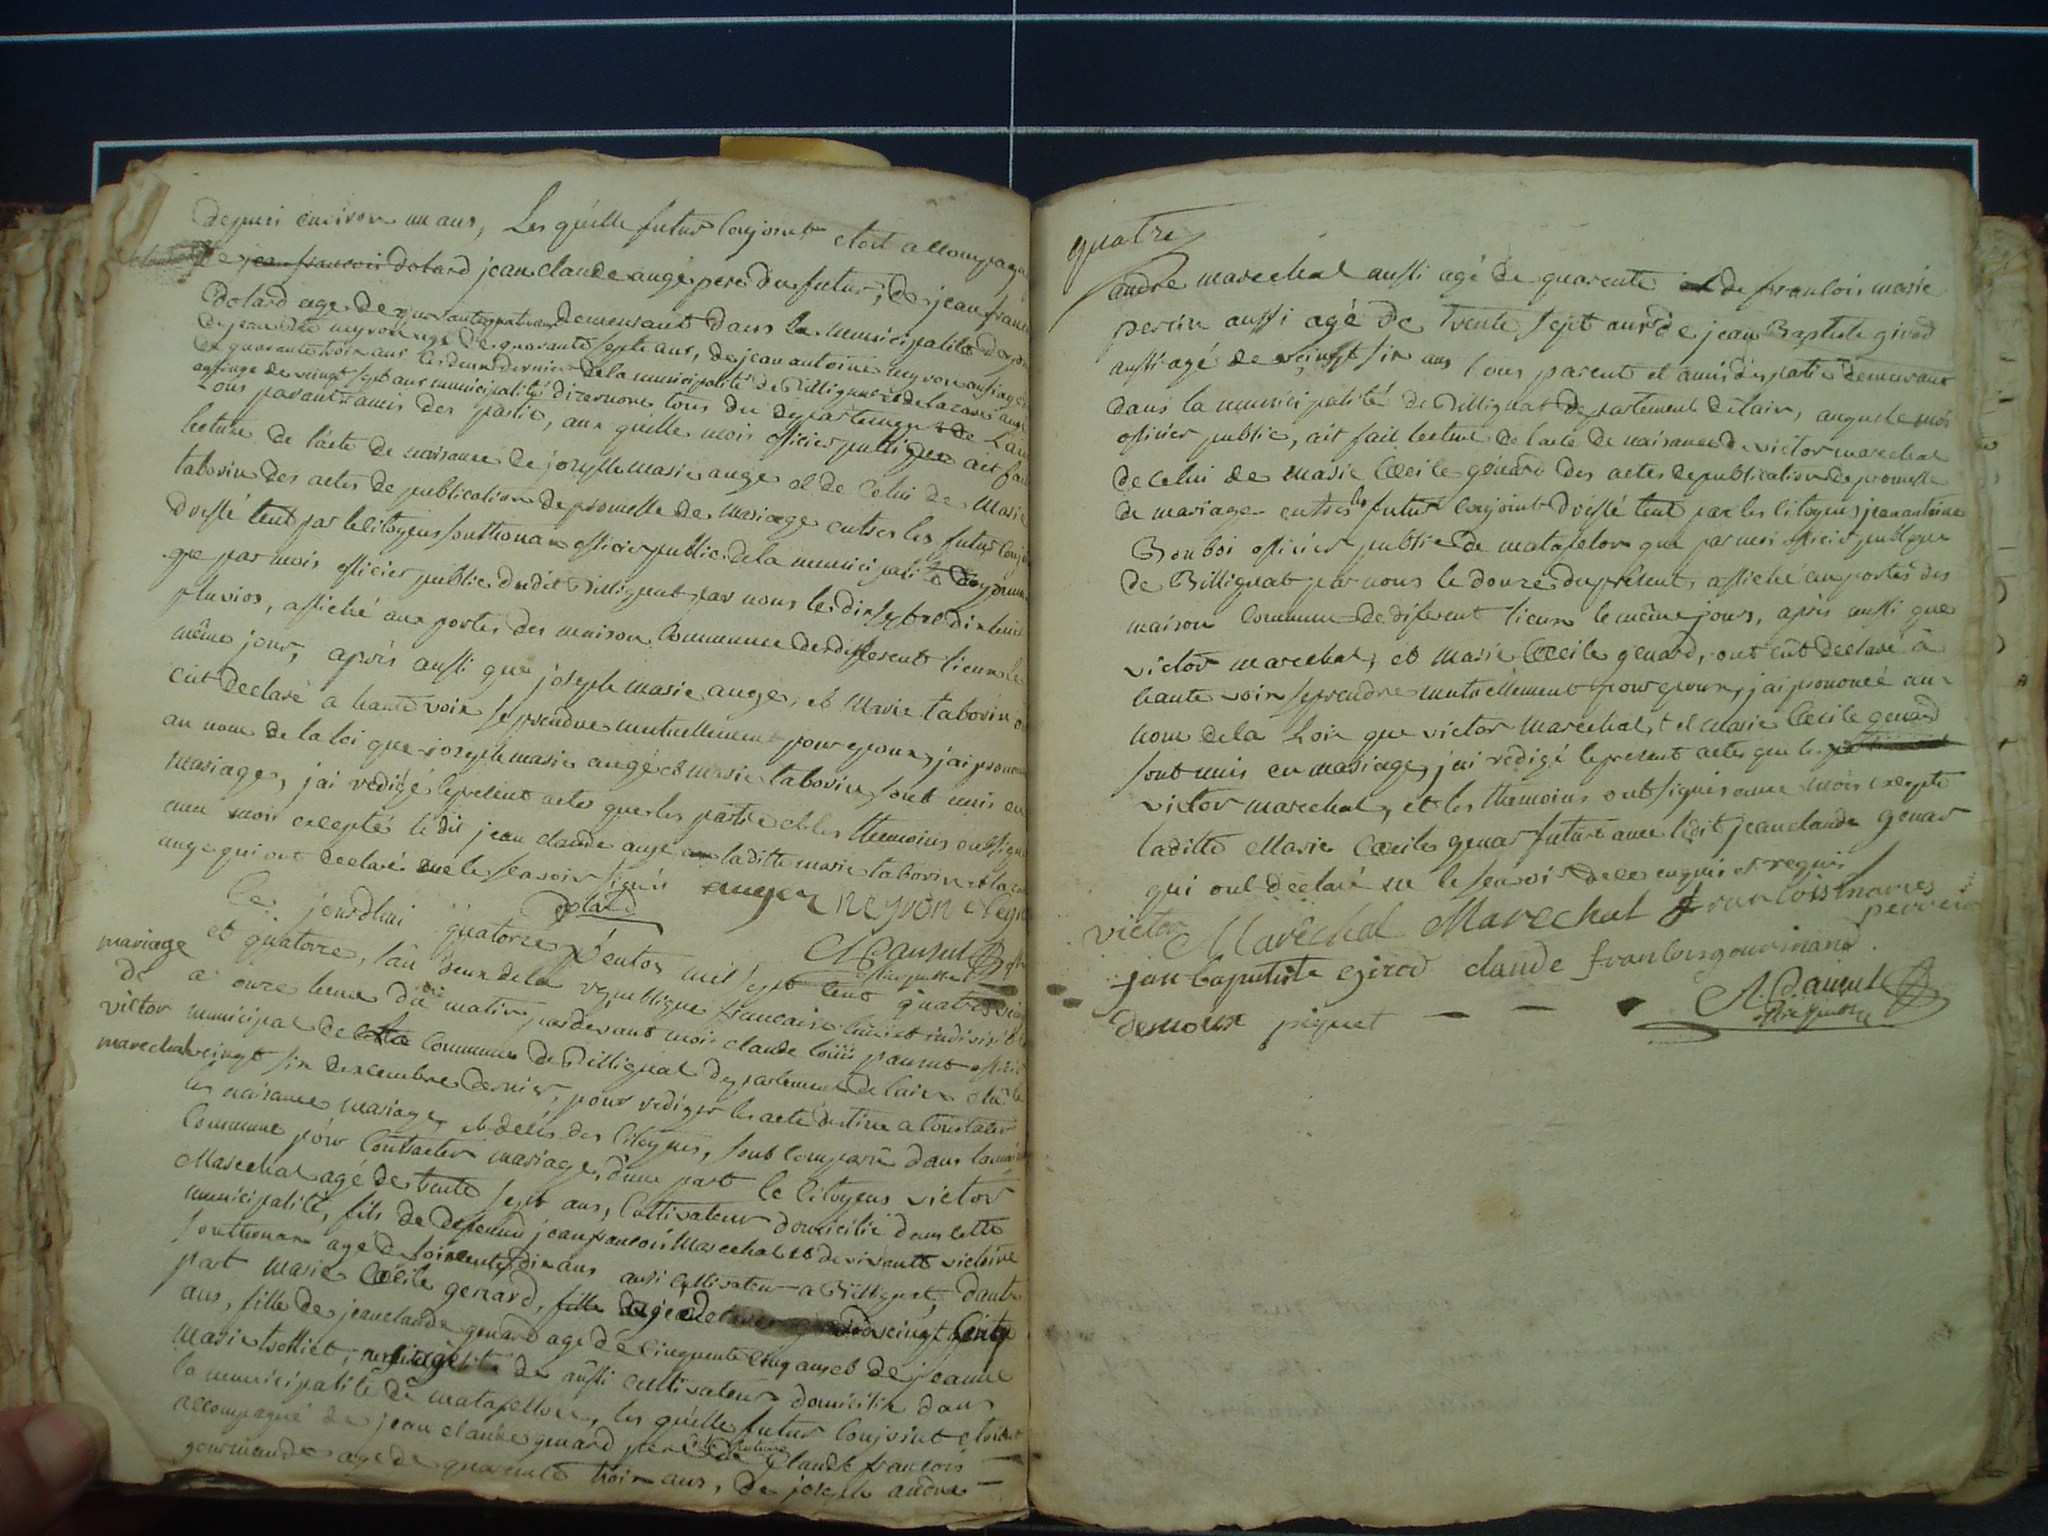 depuis environ un ans, Les quelle futur Conjoint etoit accompagn
de jean francois dolard jean claude augé pere du futur, de jean francois
dolard age de quarante quatre ans demeurant dans la municipalité
de jean neyron agé de quarante septe ans, de jean antoine neyron ausi agé
de quarante trois ans les deux dernier de la municipalité de Billignat et de lazare augé
ausi age de vingt sept ans municipalité dizernore tous du departement de Lain
tous parent et amis des partie, aux quelle moi officier publique ait fait
lecture de l'acte de naisance de joseph marie auge et de celui de Marie
taborin des actes de publication de promesse de Mariage entres les futur Conjoint
dressé tent par le citoyens Souttonax officier public de la municipalité
que par mois officier public dudit Billignat par nous le dix sept et dix huit
pluvios, affiché aux portes des maison Commune des different lieux le
même jour, après aussi que joseph marie augé, et Marie taborin
eut declaré a haute voix se prendre mutuellement pour epoux, j'ai prononcé
au nom de la loi que joseph marie augé et marie taborin sont unis en
mariage, j'ai redigé le present acte que les partie et les themoins ont signé
avec moi excepté le dit jean claude auge laditte marie taborin et lazare
auge qui ont declaré ne le scavoir signé auger neyron Neyron
dolard
C L Paunet
officier public
Ce jourdhui quatorze Ventos mil sept cent quatre vingt
et quatorze, l'an deux de la republique francaise une et indivisible
mariage
de
victor
marechal
a onze heure du matin pardevant mois claude louis paunet officier
municipal de la Commune de Billignat departement de lain elu le
vingt six decembre dernier, pour rediger les acte destine a Constater
les naisance mariage, et deces des Citoyens, sont comparu dans la maison
Commune pour Contracter mariage, d'une part le Citoyens victor
Marechal agé de trente sept ans, Cultivateur domicilié dans cette
municipalité, fils de defunt jean francois Marechal et de vivante victoire
Souttonax agé de soixente dix ans ausi cultivateur a Billignat, dautre
part marie Cecile genard, vingt
ans, fille de jean claude genard age de Cinquente Cinq ans et de jeanne
Marie aussi cultivateur domicilié dans
la municipalité de matafellon, les quelle futur Conjoint etoient
accompagné de jean claude genard pere de la future de Claude francois
gourmand age de quarente trois ans, de joseph andre
quatre
andre marechal aussi agé de quarente et de francois marie
perrin aussi agé de trente sept ans de jean Baptiste girod
aussi agé de vingt six ans tous parent et amis des partie demeurant
dans la municipalité de Billignat departement de lain, auquele moi
officier public, ait fait lecture de l'acte de naisance de victor marechal
de celui de Marie Cecile génard des actes de publication de promesse
de mariage entres les futur Conjoint dressé tent par les citoyens jean antoine
Bonboi officier public de matafelon que par moi officier publique
de Billignat par nous le douze du présent, affiché au portes des
maison Commune de diferent lieux le même jours, après aussi que
victor marechal, et Marie Cecile genard, ont eut declaré à
haute voix se prendre mutuellement pour epoux, j'ai prononcé au
nom de la Loix que victor marechal, et marie Cecile genard
sont unis en mariage, j'ai redigé le present actes que les
victor marechal, et les themoins ont signés avec mois excepté
laditte Marie Cecile genar future avec ledit jean claude genar
qui ont declaré ne le scavoir de ce enquis et requis
victor Marechal Marechal francois maries
perrein
jan baptiste girod claude francois gourmand
demoux piquet
C L Paunet
officier public